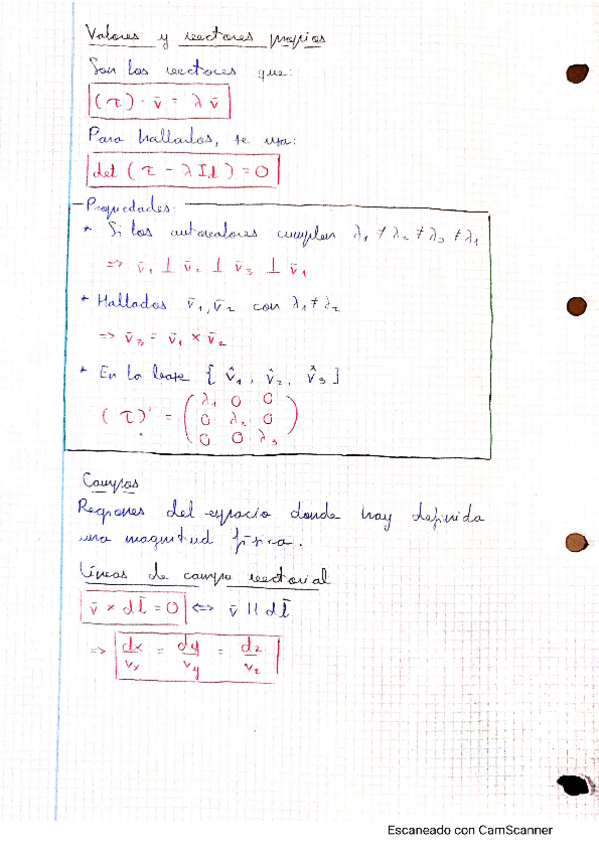 Valores y vectores propios
Son los vectores que:
(τ) · v̄ = λ v̄
Para hallarlos, se usa:
det (τ - λ Id) = 0
Propiedades:
* Si los autovalores cumplen λ₁ ≠ λ₂ ≠ λ₃ ≠ λ₁
=> v̄₁ ⊥ v̄₂ ⊥ v̄₃ ⊥ v̄₁
* Hallados v̄₁, v̄₂ con λ₁ ≠ λ₂
=> v̄₃ = v̄₁ × v̄₂
* En la base { v̂₁, v̂₂, v̂₃ }
(τ)' = ( λ₁ 0 0
0 λ₂ 0
0 0 λ₃ )
Campos
Regiones del espacio donde hay definida
una magnitud física.
Líneas de campo vectorial
v̄ × dl̄ = 0 <=> v̄ || dl̄
=> dx/vₓ = dy/v_y = dz/v_z
Escaneado con CamScanner